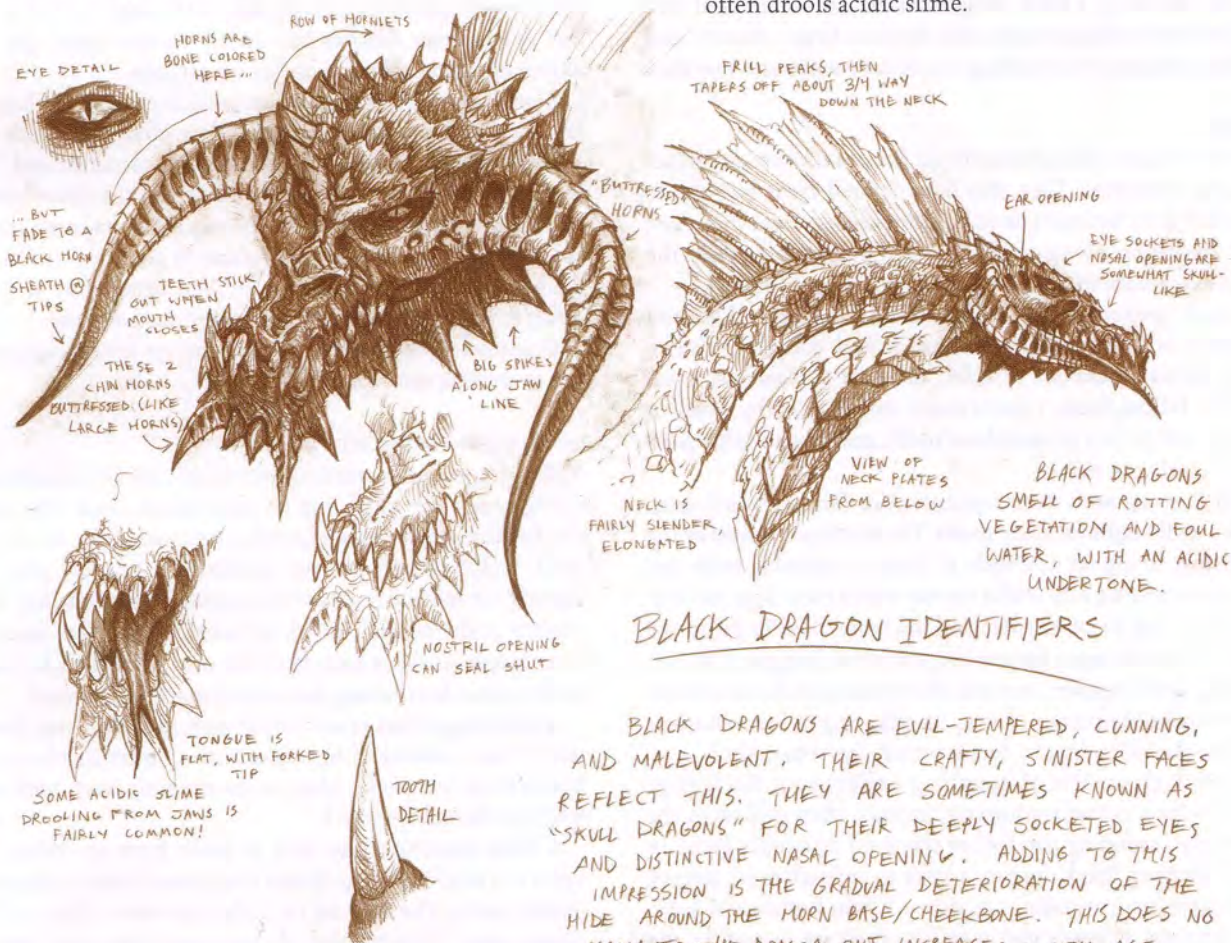 often drools acidic slime.
ROW OF HORNLETS
HORNS ARE
BONE COLORED
HERE...
EYE DETAIL
... BUT
FADE TO A
BLACK HORN
SHEATH @
TIPS
TEETH STICK
OUT WHEN
MOUTH
CLOSES
THESE 2
CHIN HORNS
BUTTRESSED (LIKE
LARGE HORNS)
"BUTTRESSED"
HORNS
BIG SPIKES
ALONG JAW
LINE
NOSTRIL OPENING
CAN SEAL SHUT
TONGUE IS
FLAT, WITH FORKED
TIP
SOME ACIDIC SLIME
DROOLING FROM JAWS IS
FAIRLY COMMON!
TOOTH
DETAIL
FRILL PEAKS, THEN
TAPERS OFF ABOUT 3/4 WAY
DOWN THE NECK
EAR OPENING
EYE SOCKETS AND
NASAL OPENING ARE
SOMEWHAT SKULL-
LIKE
NECK IS
FAIRLY SLENDER,
ELONGATED
VIEW OF
NECK PLATES
FROM BELOW
BLACK DRAGONS
SMELL OF ROTTING
VEGETATION AND FOUL
WATER, WITH AN ACIDIC
UNDERTONE.
BLACK DRAGON IDENTIFIERS
BLACK DRAGONS ARE EVIL-TEMPERED, CUNNING,
AND MALEVOLENT. THEIR CRAFTY, SINISTER FACES
REFLECT THIS. THEY ARE SOMETIMES KNOWN AS
"SKULL DRAGONS" FOR THEIR DEEPLY SOCKETED EYES
AND DISTINCTIVE NASAL OPENING. ADDING TO THIS
IMPRESSION IS THE GRADUAL DETERIORATION OF THE
HIDE AROUND THE HORN BASE/CHEEKBONE. THIS DOES NO